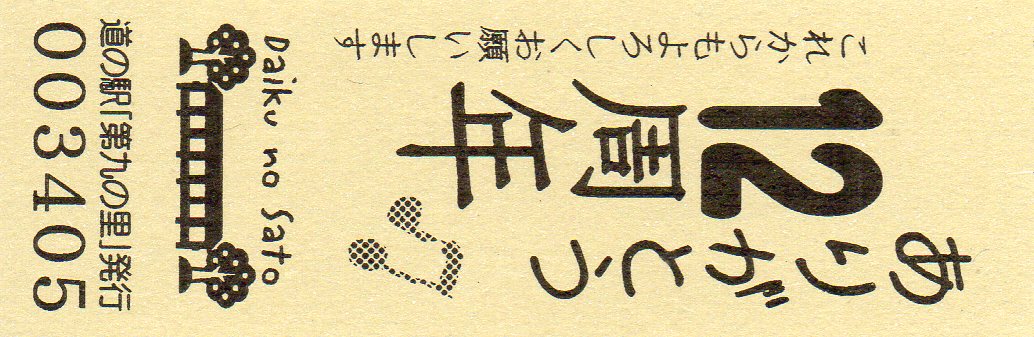 ありがとう
12
周年
これからもよろしくお願いします
Daiku no Sato
道の駅「第九の里」発行
003405